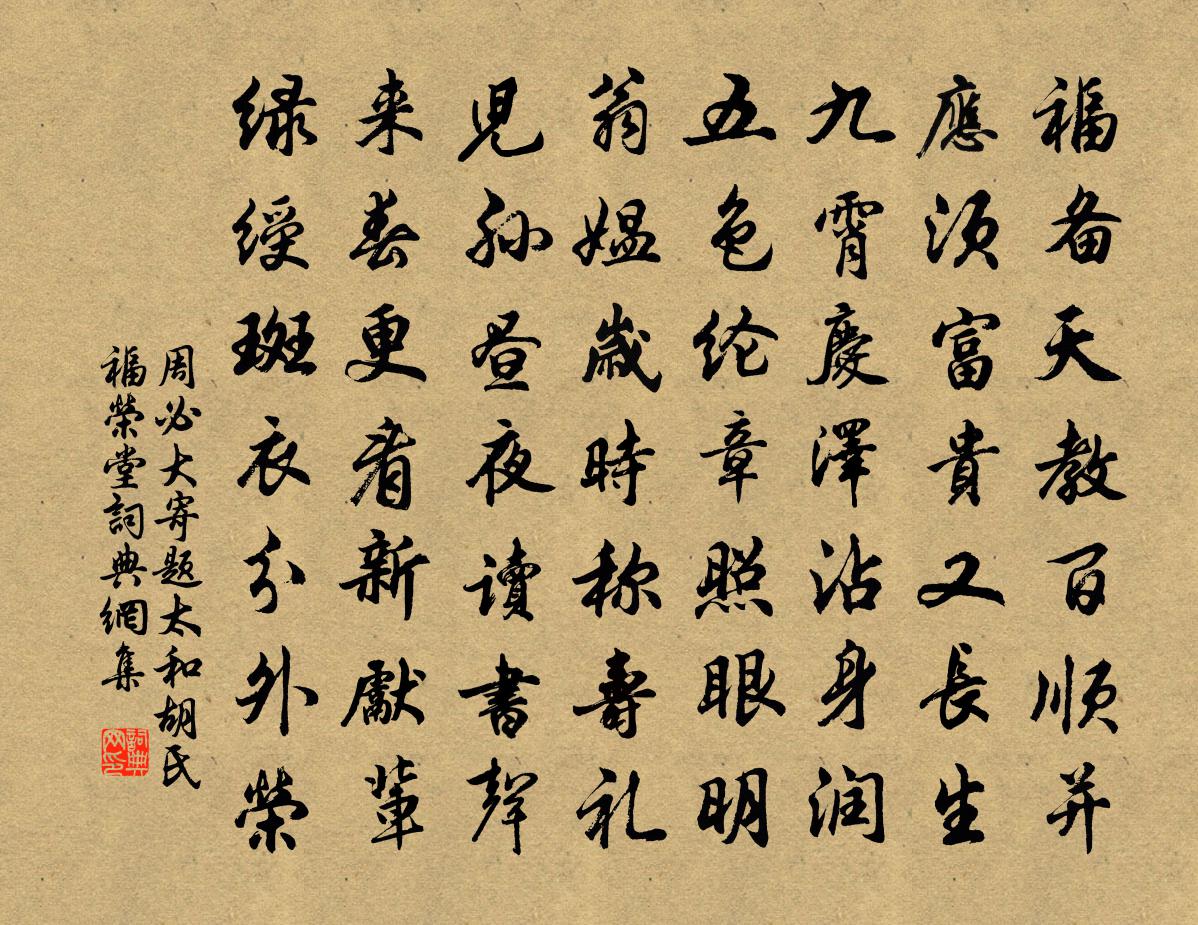 福备天教百顺并
應须富貴又長生
九霄慶澤沾身润
五色纶章照眼明
翁媪歲時称壽礼
児孙昼夜读書聲
来春更看新獻輦
绿绶斑衣分外榮
周必大寄题太和胡氏
福榮堂詞典網集
詞典
网印